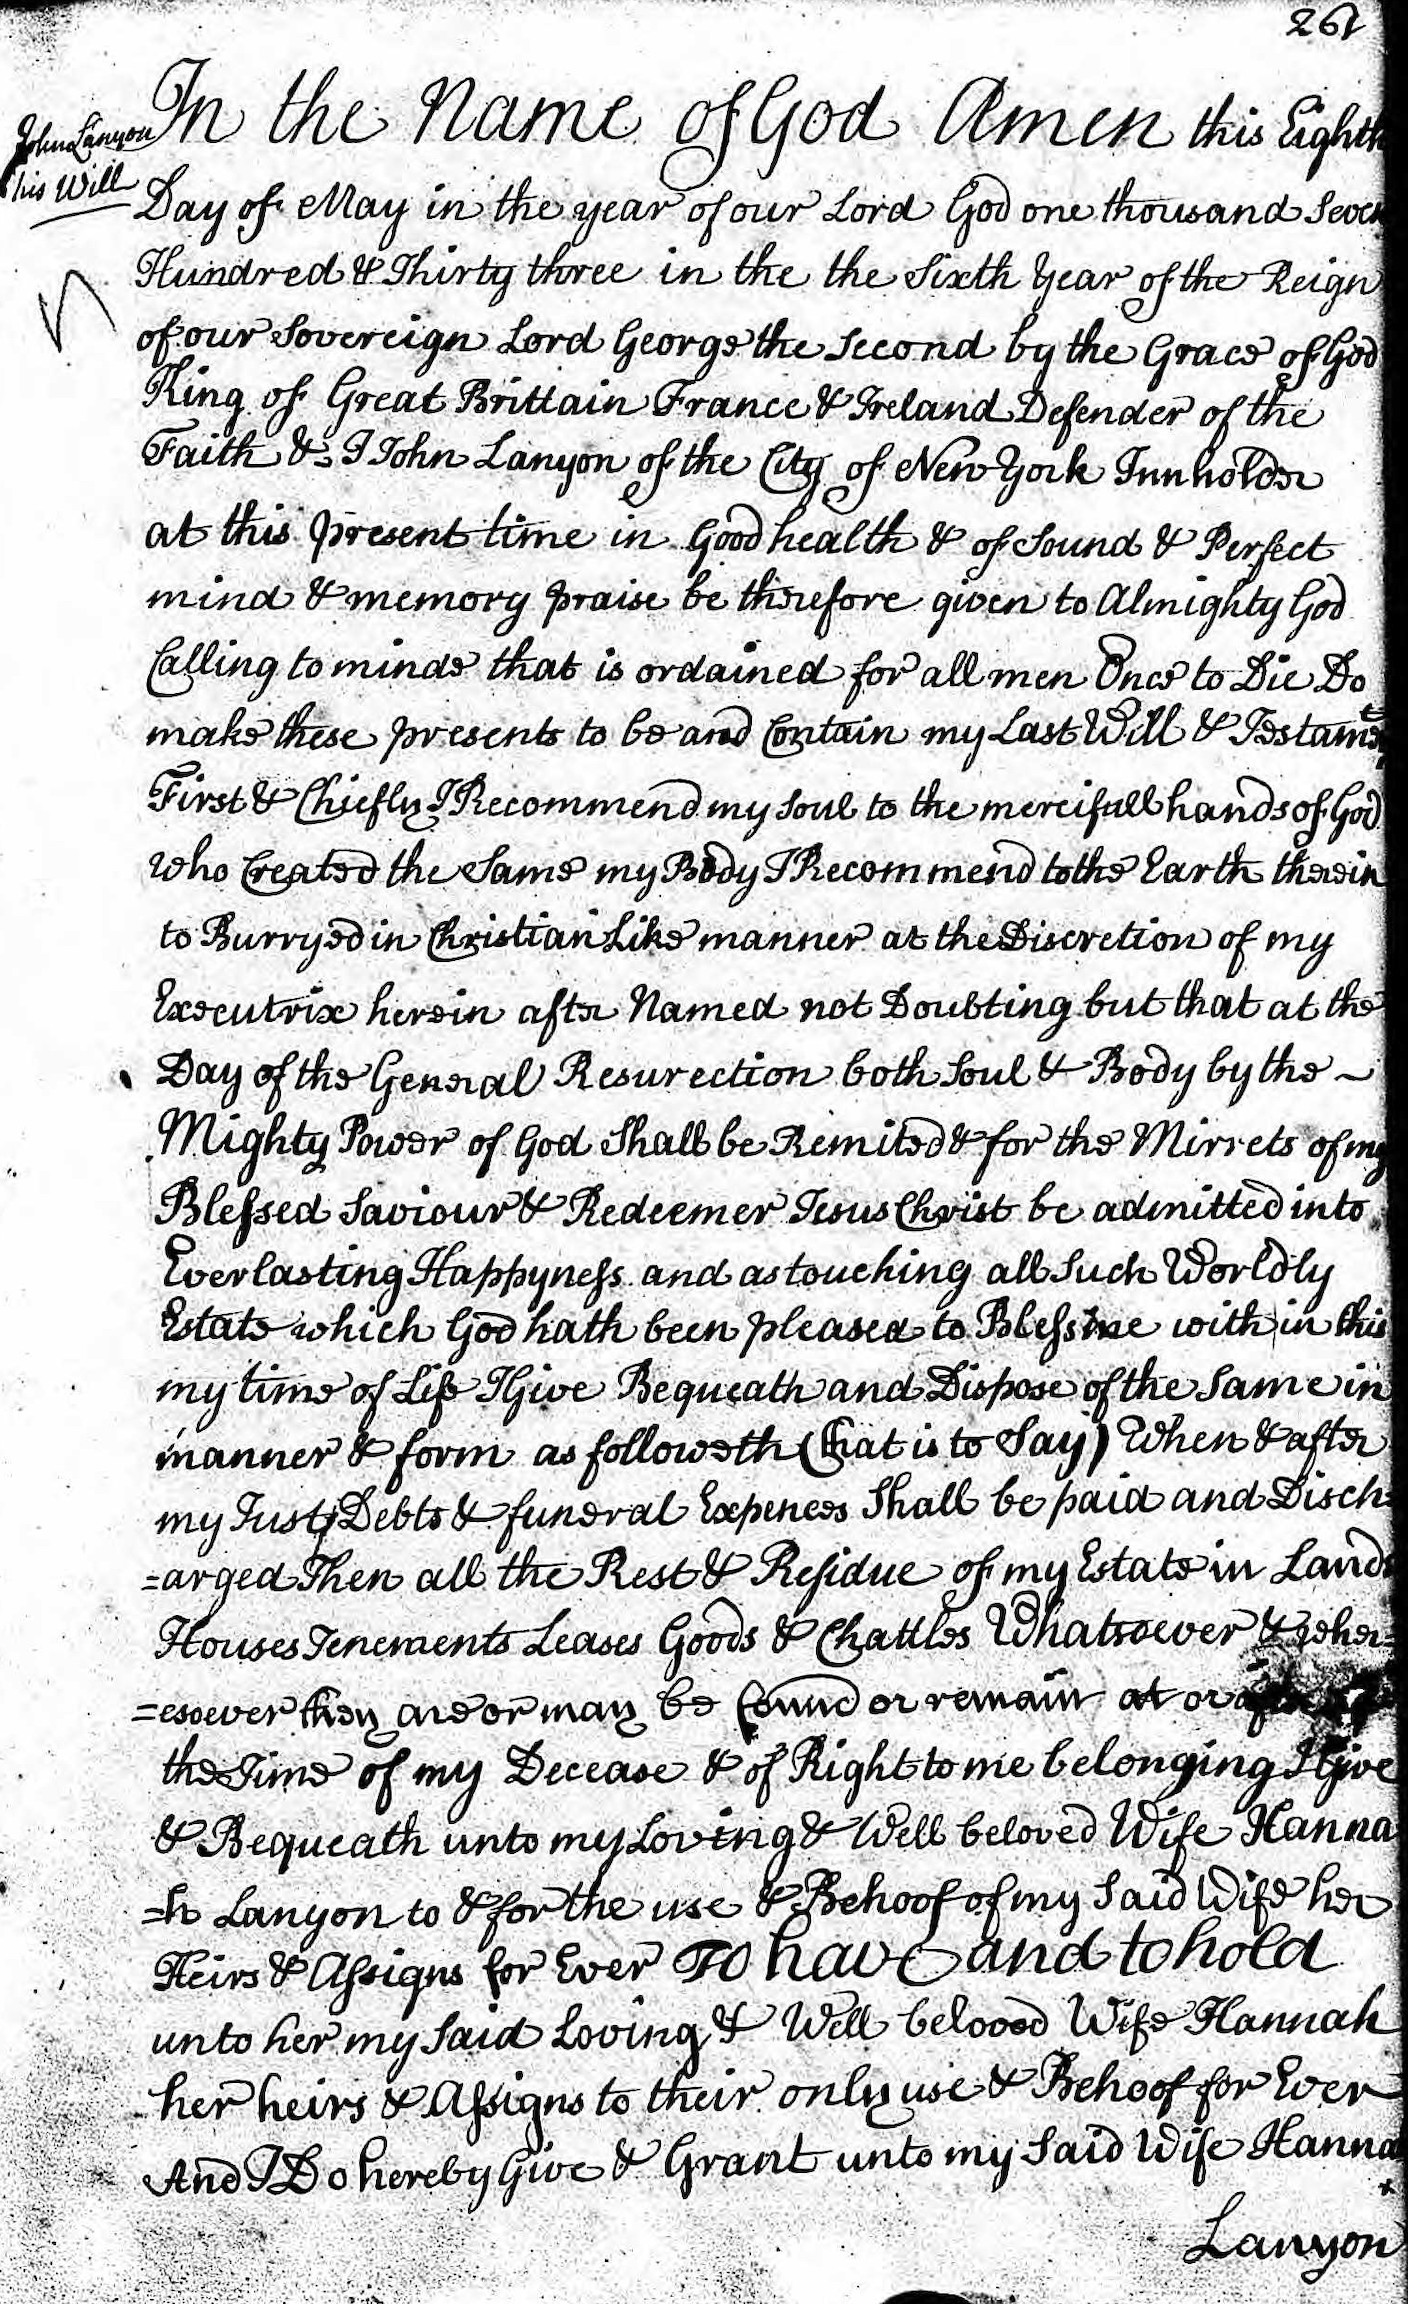 261
In the Name of God Amen this Eighth
John Lanyon
his Will
Day of May in the year of our Lord God one thousand Seven
Hundred & Thirty three in the the Sixth Year of the Reign
of our Sovereign Lord George the Second by the Grace of God
King of Great Brittain France & Ireland Defender of the
Faith &c I John Lanyon of the City of New York Innholder
at this present time in Good health & of Sound & Perfect
mind & memory praise be therefore given to Almighty God
Calling to minde that is ordained for all men Once to Die Do
make these presents to be and Contain my Last Will & Testamet
First & Chiefly I Recommend my Soul to the mercifull hands of God
who Created the Same my Body I Recommend to the Earth therein
to Burryed in Christian Like manner at the Discretion of my
Executrix herein after Named not Doubting but that at the
Day of the General Resurection both Soul & Body by the ~
Mighty Power of God Shall be Remited & for the Mirrets of my
Blessed Saviour & Redeemer Jesus Christ be admitted into
Everlasting Happyness and as touching all Such Worldly
Estate which God hath been pleased to Bless me with in this
my time of Life I Give Bequeath and Dispose of the Same in
manner & form as followeth (that is to Say) When & after
my Just Debts & funeral Expences Shall be paid and Disch=
=arged Then all the Rest & Residue of my Estate in Lands
Houses Tenements Leases Goods & Chattles Whatsoever & wher=
=esoever they are or may be found or remain at or after
the Time of my Decease & of Right to me belonging I Give
& Bequeath unto my Loving & Well beloved Wife Hanna
=h Lanyon to & for the use & Behoof of my Said Wife her
Heirs & Assigns for Ever To have and to hold
unto her my Said Loving & Well beloved Wife Hannah
her heirs & Assigns to their only use & Behoof for Ever
And I Do hereby Give & Grant unto my Said Wife Hanna
Lanyon